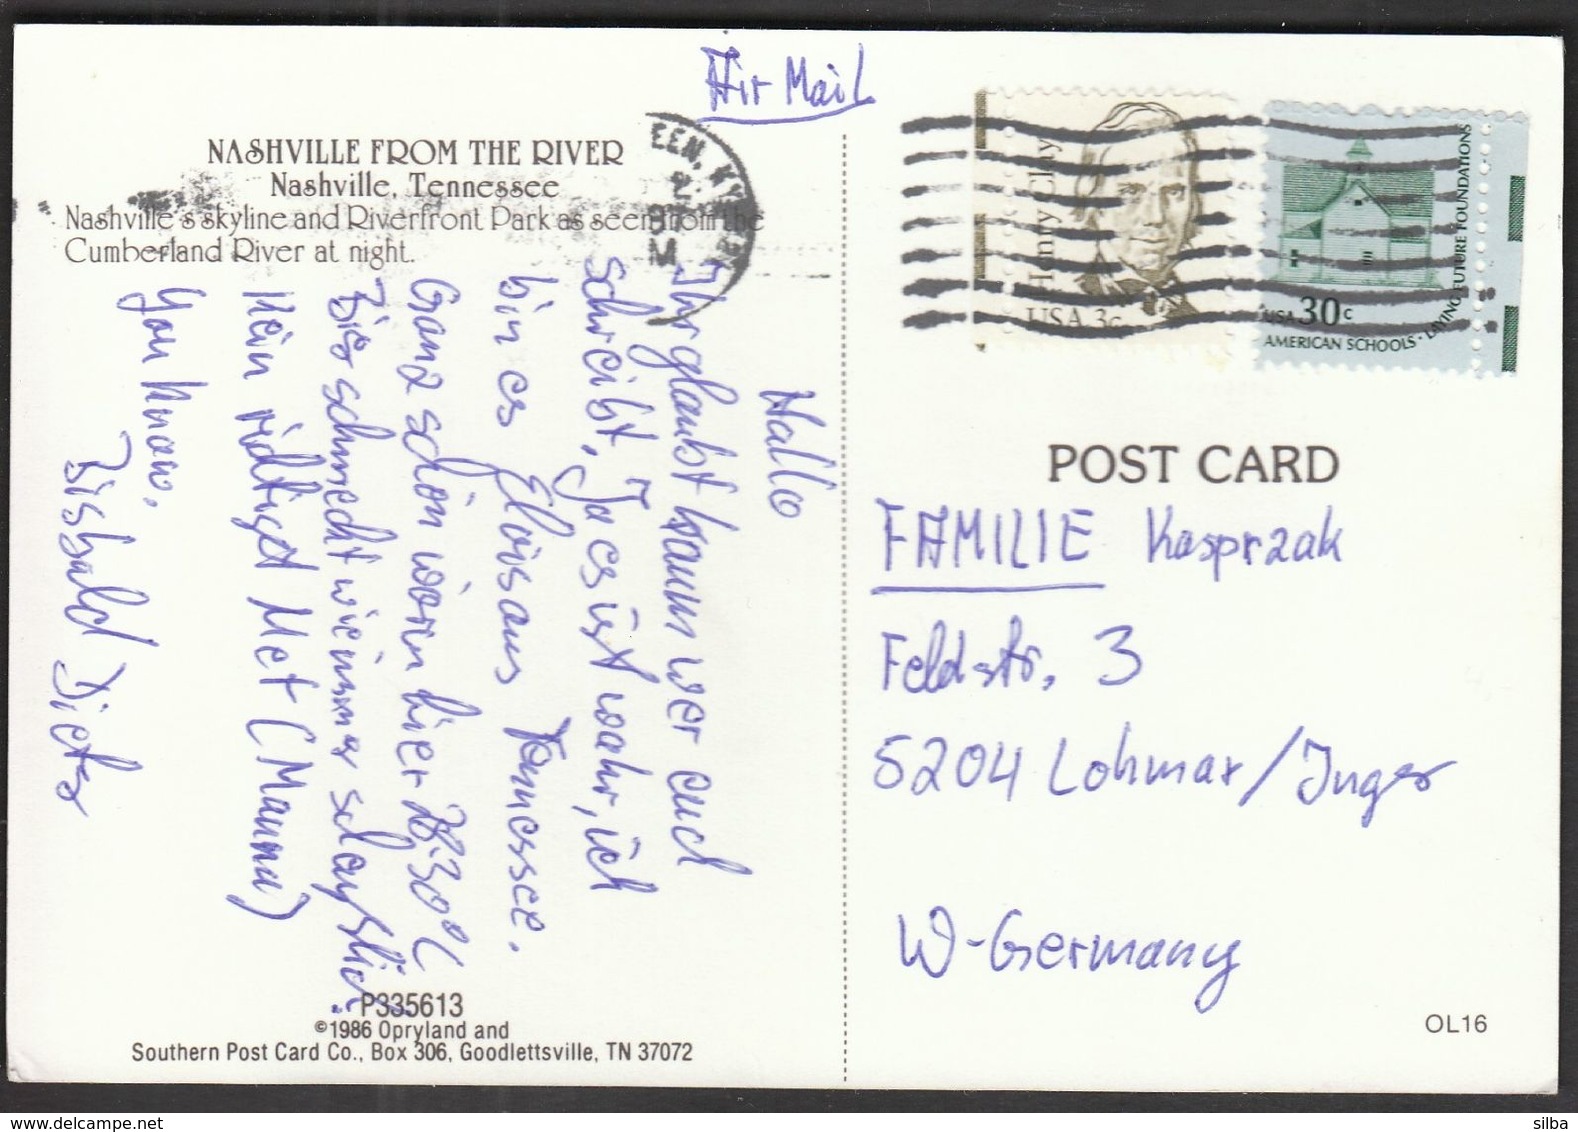 Air Mail
NASHVILLE FROM THE RIVER
Nashville, Tennessee
Nashville's skyline and Riverfront Park as seen from the
Cumberland River at night.
Hallo
Ihr glaubt kaum wer euch
schreibt. Ja es ist wahr, ich
bin es Elvis aus Tennessee.
Ganz schön worm hier 28-30°C
Bier schmeckt wie immer scheußlich.
Kein richtiges Met (Mannu)
You know.
Bisbald Dieter
P335613
©1986 Opryland and
Southern Post Card Co., Box 306, Goodlettsville, TN 37072
EEN, KY
Henry Clay
USA 3c
USA 30c
AMERICAN SCHOOLS · LAYING FUTURE FOUNDATIONS
POST CARD
FAMILIE Kasprzak
Feldstr. 3
5204 Lohmar/Inger
W-Germany
OL16
silba